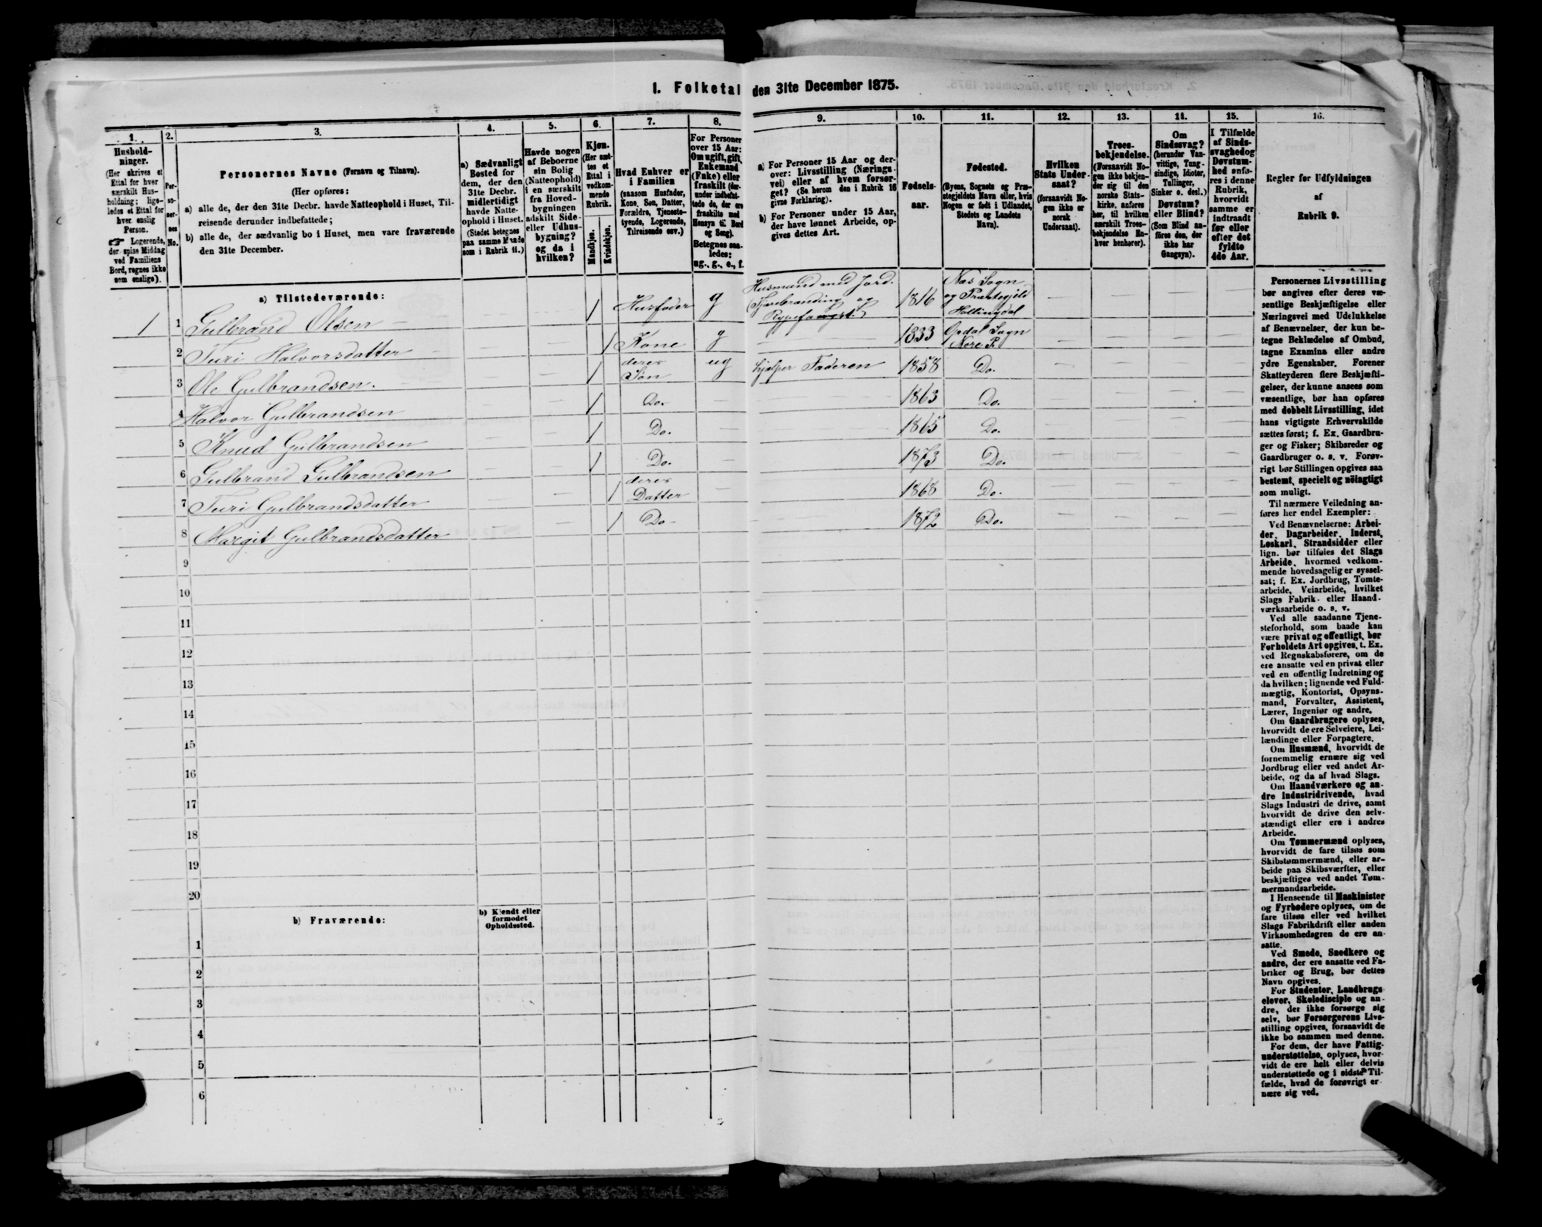 1. Folketal den 31te December 1875.
1. 2. 3. 4. 5. 6. 7. 8. 9. 10. 11. 12. 13. 14. 15. 16.
Hushold-
ninger.
(Her skrives et
Ettal for hver
særskilt Hus-
holdning; lige-
ledes et Ettal for
hver enslig
Person.
☞ Logerende,
der spise Middag
ved Familiens
Bord, regnes ikke
som enslige).
Per-
so-
ner-
nes
No.
Personernes Navne (Fornavn og Tilnavn).
(Her opføres:
a) alle de, der den 31te Decbr. havde Natteophold i Huset, Til-
reisende derunder indbefattede;
b) alle de, der sædvanlig bo i Huset, men vare fraværende
den 31te December.
a) Sædvanligt
Bosted for
dem, der den
31te Decbr.
midlertidigt
havde Natte-
ophold i Huset.
(Stedet betegnes
paa samme Maade
som i Rubrik 11.)
Havde nogen
af Beboerne
sin Bolig
(Natteophold)
i en særskilt
fra Hoved-
bygningen
adskilt Side-
eller Udhus-
bygning?
og da i
hvilken?
Kjøn.
(Her sæt-
tes et
Ettal i
vedkom-
mende
Rubrik.
Mandkjøn.
Kvindekjøn.
Hvad Enhver er
i Familien
(saasom Husfader,
Kone, Søn, Datter,
Forældre, Tjeneste-
tyende, Logerende,
Tilreisende osv.)
For Personer
over 15 Aar:
Om ugift, gift,
Enkemand
(Enke) eller
fraskilt (der-
under indbefat-
tede de, der ere
fraskilte med
Hensyn til Bord
og Seng).
Betegnes saa-
ledes:
ug., g., e., f.
a) For Personer 15 Aar og der-
over: Livsstilling (Nærings-
vei) eller af hvem forsør-
get? (Se herom den i Rubrik 16
givne Forklaring).
b) For Personer under 15 Aar,
der have lønnet Arbeide, op-
gives dettes Art.
Fødsels-
aar.
Fødested.
(Byens, Sognets og Præ-
stegjeldets Navn eller, hvis
Nogen er født i Udlandet,
Stedets og Landets
Navn).
Hvilken
Stats Under-
saat?
(forsaavidt No-
gen ikke er
norsk
Undersaat).
Troes-
bekjendelse.
(Forsaavidt Nogen
ikke bekjen-
der sig til den
norske Stats-
kirke, anføres
her, til hvilken
særskilt Troes-
bekjendelse Ved-
kommende
hører).
Om
Sindssvag?
(herunder Van-
vittige, Tung-
sindige, Idioter,
Tullinger,
Sinker o. desl.)
Døvstum?
eller Blind?
(Som Blind an-
føres den, der
ikke har
Gangsyn).
I Tilfælde
af Sinds-
svaghed og
Døvstum-
hed anfø-
res i denne
Rubrik,
hvorvidt
samme er
indtraadt
før eller
efter det
fyldte
4de Aar.
Regler for Udfyldningen
af
Rubrik 9.
a) Tilstedeværende:
1 1 Gulbrand Olsen 1 Husfader g Husmand med Jord. Tjærebranding og Rypefangst 1816 Næs Sogn og Præstegjeld Hallingdal
2 Turi Halvorsdatter 1 Kone g 1833 Opdal Sogn Nore P.
3 Ole Gulbrandsen. 1 deres Søn ug hjælper Faderen 1858 Do.
4 Halvor Gulbrandsen 1 Do. 1863 Do.
5 Knud Gulbrandsen 1 Do. 1865 Do.
6 Gulbrand Gulbrandsen 1 Do. 1873 Do.
7 Turi Gulbrandsdatter 1 deres Datter 1868 Do.
8 Margit Gulbrandsdatter 1 Do 1872 Do.
9
10
11
12
13
14
15
16
17
18
19
20
b) Fraværende:
b) Kjendt eller
formodet
Opholdssted.
1
2
3
4
5
6
Personernes Livsstilling
bør angives efter deres væ-
sentlige Beskjæftigelse eller
Næringsvei med Udelukkelse
af Benævnelser, der kun be-
tegne Beklædelse af Ombud,
tagne Examina eller andre
ydre Egenskaber. Forener
Skatteyderen flere Beskjæfti-
gelser, der kunne ansees som
væsentlige, bør han opføres
med dobbelt Livsstilling, idet
hans vigtigste Erhvervskilde
sættes først; f. Ex. Gaardbru-
ger og Fisker; Skibsreder og
Gaardbruger o. s. v. Forøv-
rigt bør Stillingen opgives saa
bestemt, specielt og nöiagtigt
som muligt.
Til nærmere Veiledning an-
føres her endel Exempler:
Ved Benævnelserne: Arbei-
der, Dagarbeider, Inderst,
Løskarl, Strandsidder eller
lign. bør tilføies det Slags
Arbeide, hvormed vedkom-
mende hovedsagelig er syssel-
sat; f. Ex. Jordbrug, Tomte-
arbeide, Veiarbeide, hvilket
Slags Fabrik- eller Haand-
værksarbeide o. s. v.
Ved alle saadanne Tjene-
steforhold, som baade kan
være privat og offentligt, bør
Forholdets Art opgives, t. Ex.
ved Regnskabsførere, om de
ere ansatte ved en privat eller
ved en offentlig Indretning og
da hvilken; lignende ved Fuld-
mægtig, Kontorist, Opsyns-
mand, Forvalter, Assistent,
Lærer, Ingeniør og andre.
Om Gaardbrugere oplyses,
hvorvidt de ere Selveiere, Lei-
lændinge eller Forpagtere.
Om Husmænd, hvorvidt de
fornemmelig ernære sig ved
Jordbrug eller ved andet Ar-
beide, og da af hvad Slags.
Om Haandværkere og an-
dre Industridrivende, hvad
Slags Industri de drive, samt
hvorvidt de drive den selv-
stændigt eller ere i andres
Arbeide.
Om Tømmermænd oplyses,
hvorvidt de fare tilsøs som
Skibstømmermænd, eller ar-
beide paa Skibsværfter, eller
beskjæftiges ved andet Tøm-
mermandsarbeide.
I Henseende til Maskinister
og Fyrbødere oplyses, om de
fare tilsøs eller ved hvilket
Slags Fabrikdrift eller anden
Virksomhedsgren de ere an-
satte.
Ved Smede, Snedkere og
andre, der ere ansatte ved Fa-
briker og Brug, bør dettes
Navn opgives.
For Studenter, Landbrugs-
elever, Skoledisciple og an-
dre, der ikke forsørge sig
selv, bør Forsørgerens Livs-
stilling opgives, forsaavidt de
ikke bo sammen med denne.
For dem, der have Fattig-
understøttelse, oplyses, hvor-
vidt de ere helt eller delvis
understøttede og i sidste Til-
fælde, hvad de forøvrigt er-
nære sig ved.